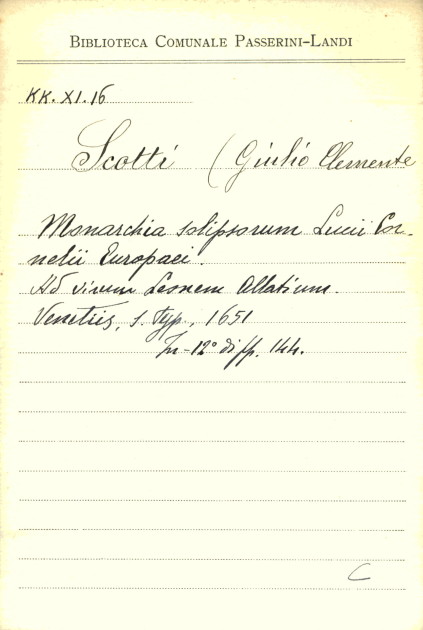 BIBLIOTECA COMUNALE PASSERINI-LANDI
KK. XI. 16
Scotti (Giulio Clemente
Monarchia solipsorum Lucii Cor-
nelii Europaei.
Ad virum Leonem Allatium.
Venetiis, s. typ., 1651
In-12° di pp. 144.
C